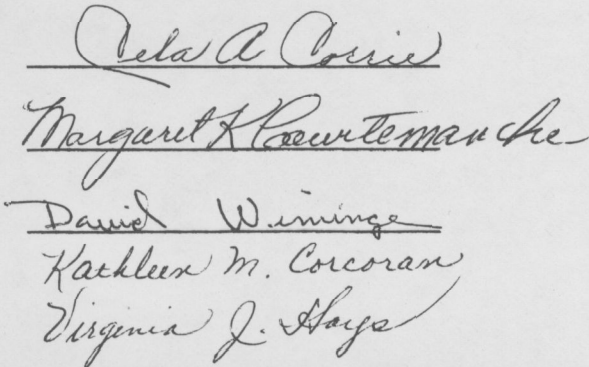 A Corrie
Margaret K Courtemanche
David
Kathleen M. Corcoran
Virginia J. Hays